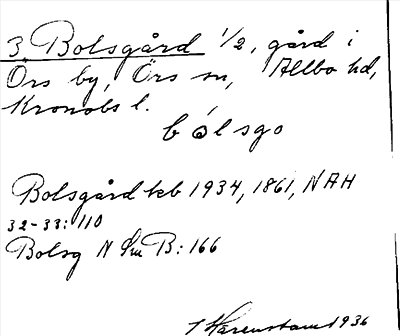 3 Bolsgård 1/2, gård i
Örs by, Örs sn, Allbo hd,
Kronobs l.
bólsgo
Bolsgård kb 1934, 1861, NAH
32-33: 110
Bolsg N Sm B: 166
1936